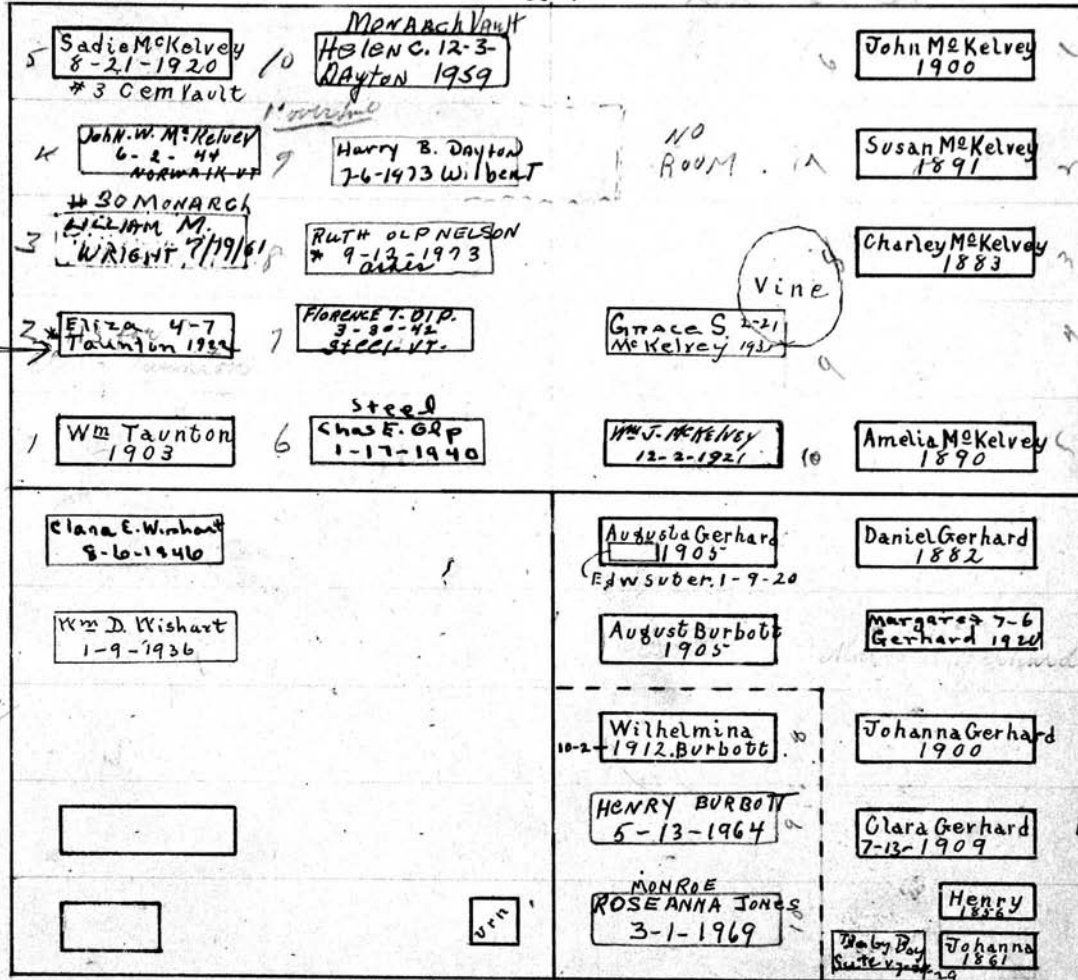 5
Sadie McKelvey
8-21-1920
#3 Cem Vault
10
MONARCH Vault
HELEN C. 12-3-
DAYTON 1959
6
John McKelvey
1900
1
4
John. W. McKelvey
6-2-44
NORWALK VT
9
Harry B. Dayton
7-6-1973 Wilbert
NO
ROOM.
Susan McKelvey
1891
2
#30 MONARCH
3
WILLIAM M.
WRIGHT 7/19/61
8
RUTH OLP NELSON
* 9-12-1973
ashes
Vine
8
Charley McKelvey
1883
3
2
* Eliza 4-7
Taunton 1932
7
FLORENCE T. OLP.
3-30-42
Steel-VT-
Grace S. 2-21
McKelvey 193
9
4
1
Wm Taunton
1903
6
Steel
Chas E. Olp
1-17-1940
Wm J. McKELVEY
12-2-1921
10
Amelia McKelvey
1890
5
Clara E. Wishart
8-6-1946
Augusta Gerhard
1905
Edw Suter. 1-9-20
Daniel Gerhard
1882
Wm D. Wishart
1-9-1936
August Burbott
1905
Margaret 7-6
Gerhard 1920
Wilhelmina
10-2-1912. Burbott
8
Johanna Gerhard
1900
HENRY BURBOTT
5-13-1964
9
Clara Gerhard
7-13-1909
urn
MONROE
ROSEANNA JONES
3-1-1969
10
Henry
1856
Baby Boy
Suter
Johanna
1861